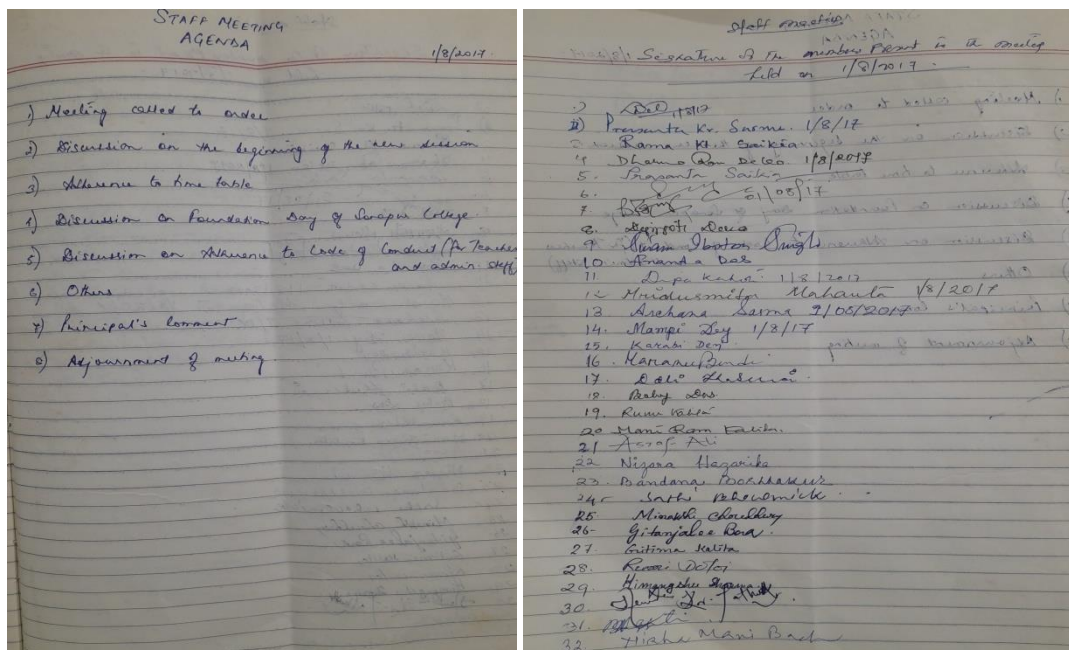 STAFF MEETING
AGENDA
1/8/2017
1) Meeting called to order
2) Discussion on the beginning of the new session
3) Adherence to time table
4) Discussion on Foundation Day of Sonapur College
5) Discussion on Adherence to Code of Conduct (for Teacher
and admin. staff)
6) Others
7) Principal's Comment
8) Adjournment of meeting
Staff meeting
Signature of the members present in the meeting
held on 1/8/2017.
1)
2) Prasanta Kr. Sarma. 1/8/17
3 Rama Kt. Saikia
4 Dharma Ram Deka 1/8/2017
5. Prasanta Saikia
6. 01/08/17
7.
8. Deka
9 Iboton Singh
10 Ananda Das
11. Dipa 1/8/2017
12 Mridusmita Mahanta 1/8/2017
13 Archana Sarma 1/08/2017
14. Mampi Dey 1/8/17
15. Karabi Dey
16.
17.
18. Das
19. Runu
20 Mani Ram Kalita.
21 Ali
22 Nizara Hazarika
23. Bandana Borthakur
24- Bhowmick
25 Minakshi Choudhury
26- Gitanjalee Bora.
27. Gitima Kalita
28.
29. Himangshu
30.
31.
32 Mani